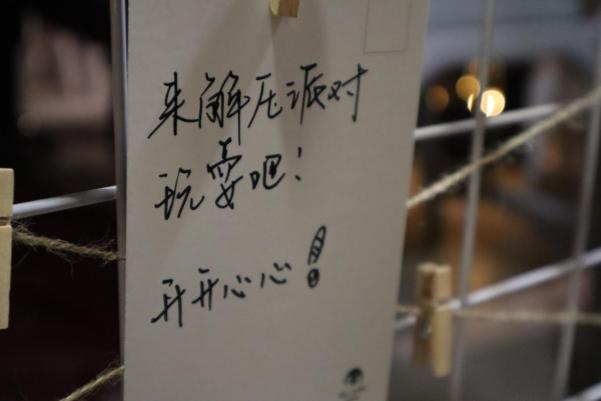 来解压派对
玩耍吧！
开开心心！